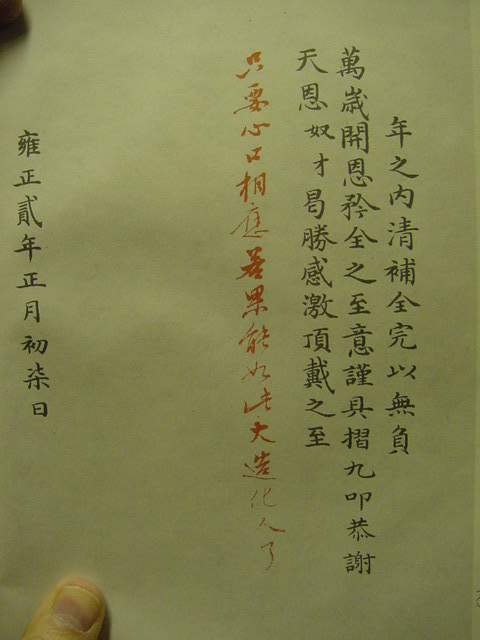 年之內清補全完以無負
萬歲開恩矜全之至意謹具摺九叩恭謝
天恩奴才曷勝感激頂戴之至
只要心口相應若果能如此大造化人了
雍正貳年正月初柒日